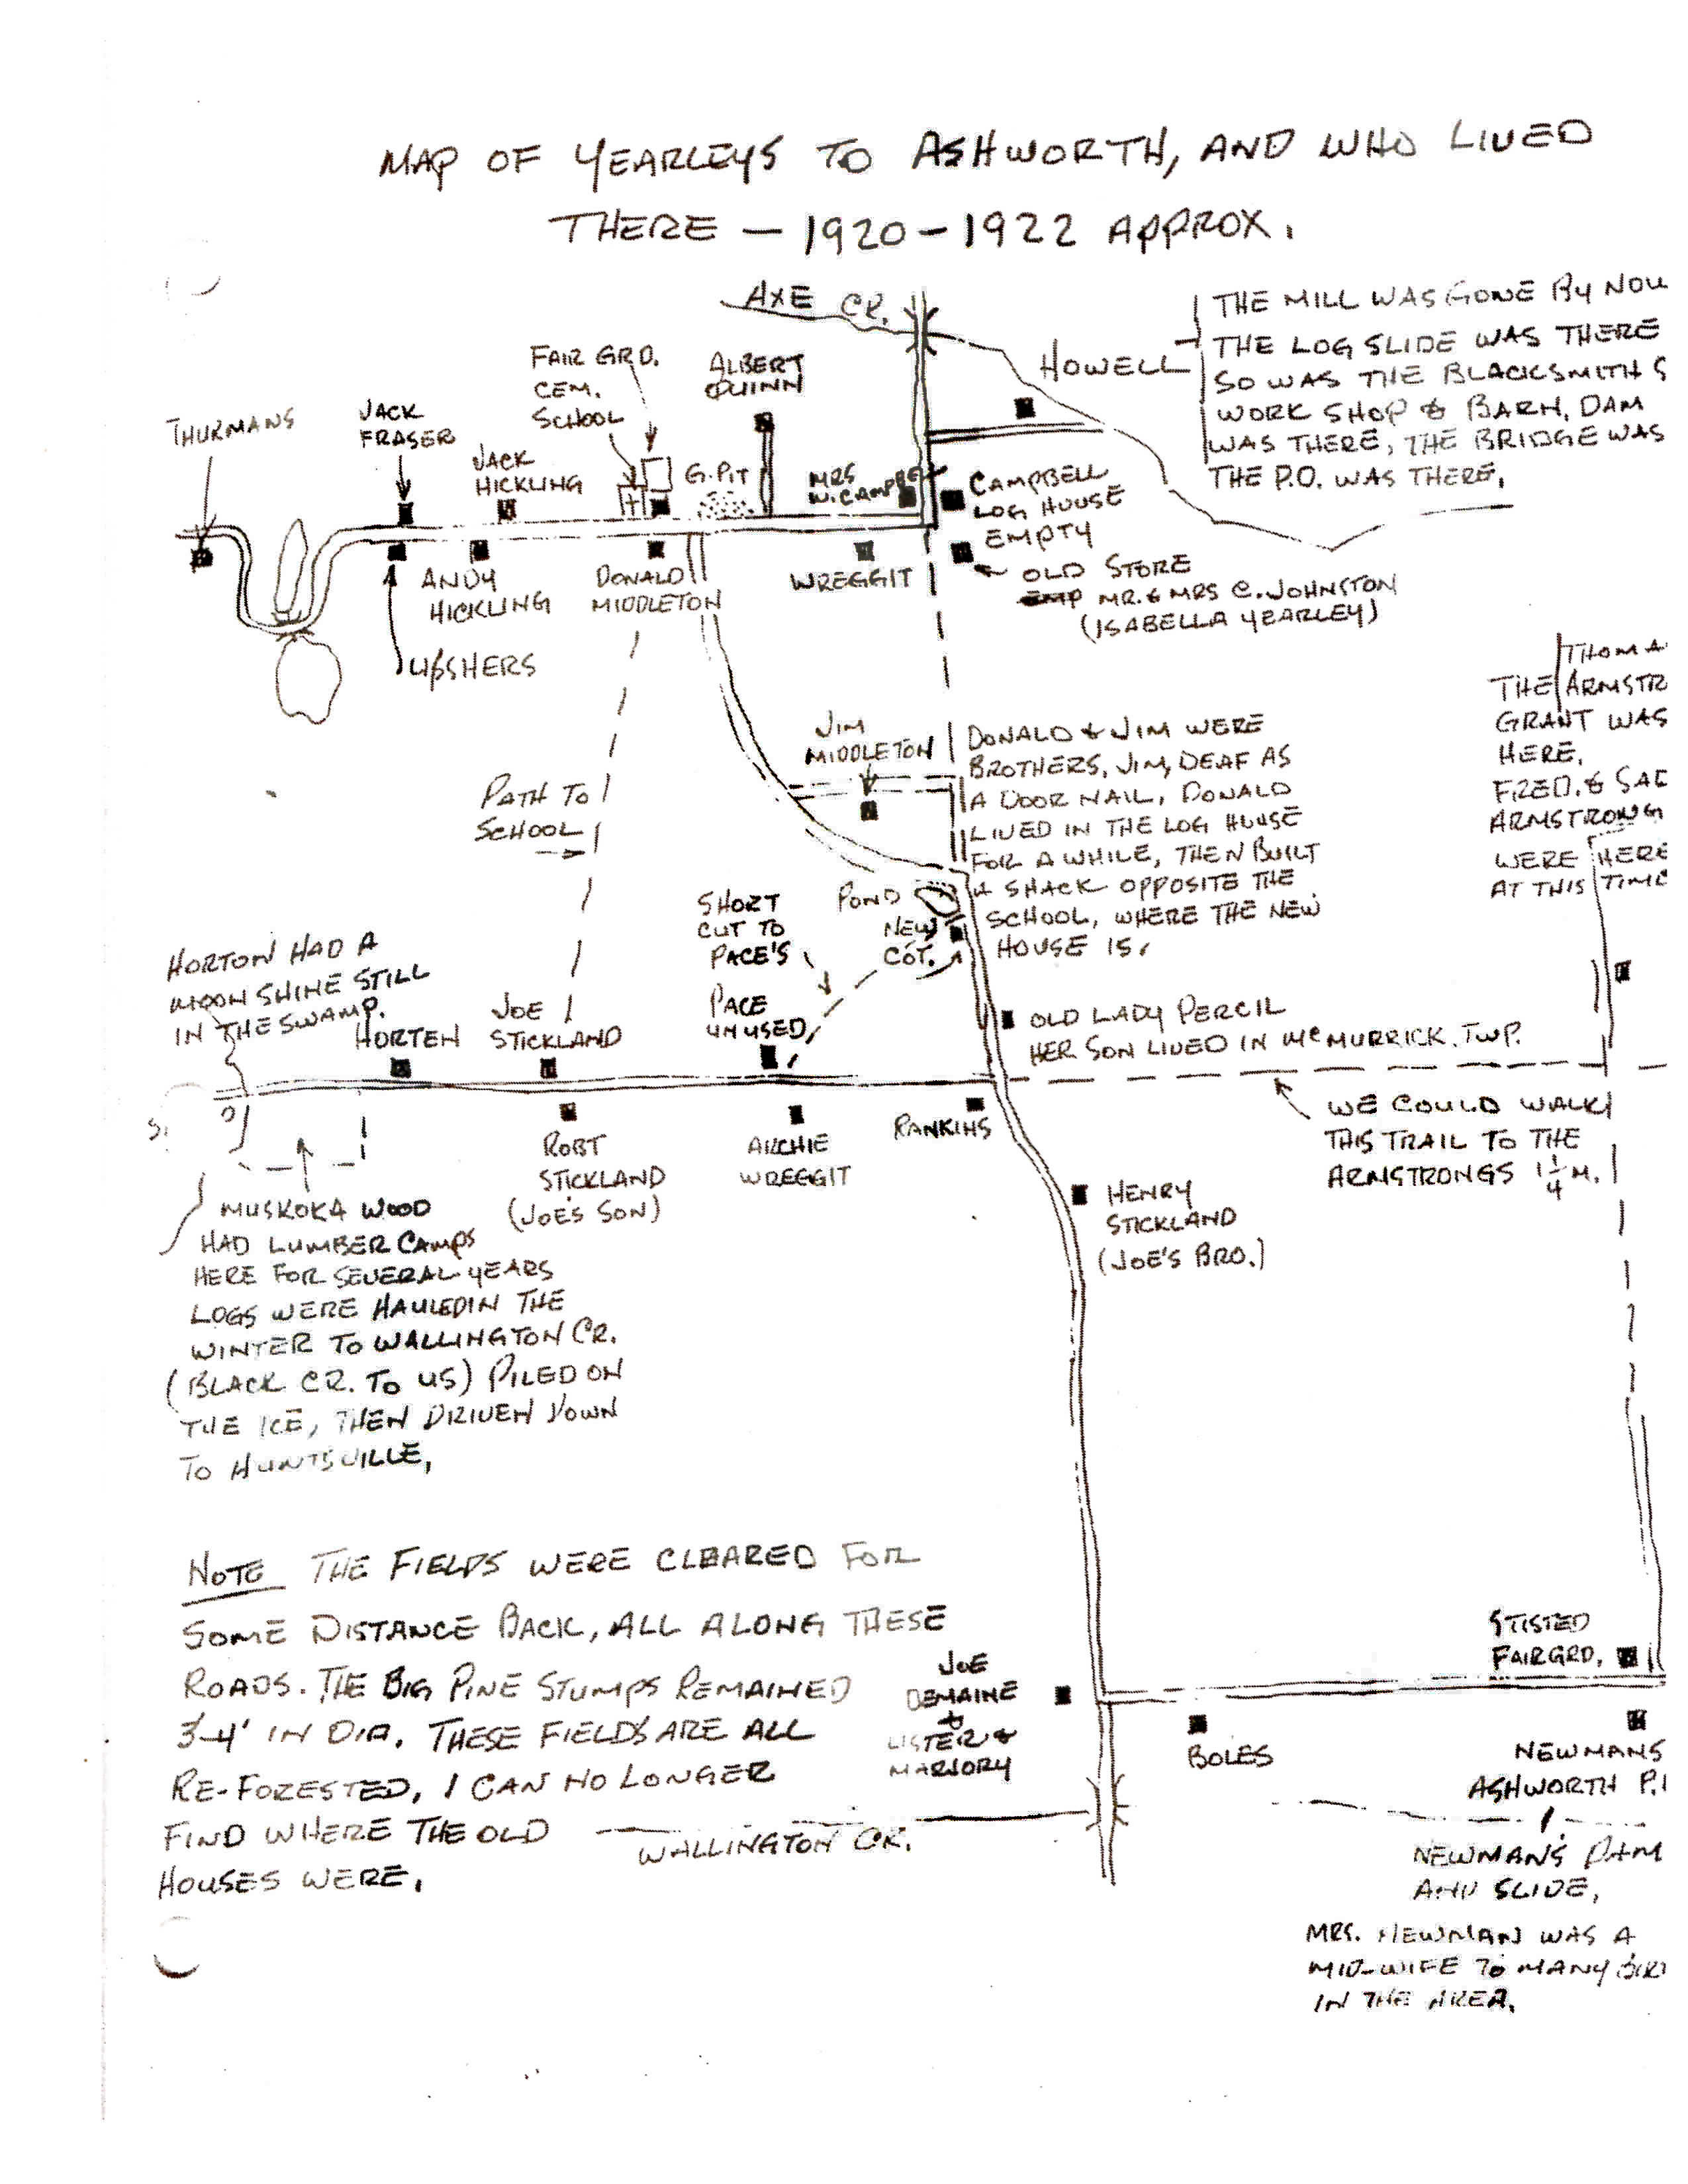 MAP OF YEARLEYS TO ASHWORTH, AND WHO LIVED
THERE — 1920-1922 APPROX.
AXE CR.
HOWELL
THE MILL WAS GONE BY NOW
THE LOG SLIDE WAS THERE
SO WAS THE BLACKSMITH S
WORK SHOP & BARN, DAM
WAS THERE, THE BRIDGE WAS
THE P.O. WAS THERE,
FAIR GRD.
CEM.
SCHOOL
ALBERT
QUINN
THURMANS
JACK
FRASER
JACK
HICKLING
G. PIT
MRS
W. CAMPBE
CAMPBELL
LOG HOUSE
EMPTY
ANDY
HICKLING
DONALD
MIDDLETON
WREGGIT
OLD STORE
MR. & MRS C. JOHNSTON
(ISABELLA YEARLEY)
UPSHERS
THOMA
THE ARMSTR
GRANT WAS
HERE.
FRED. & SAD
ARMSTRONG
WERE HERE
AT THIS TIME
JIM
MIDDLETON
DONALD & JIM WERE
BROTHERS, JIM, DEAF AS
A DOOR NAIL, DONALD
LIVED IN THE LOG HOUSE
FOR A WHILE, THEN BUILT
A SHACK OPPOSITE THE
SCHOOL, WHERE THE NEW
HOUSE IS,
PATH TO
SCHOOL
SHORT
CUT TO
PACE'S
POND
NEW
COT.
HORTON HAD A
MOON SHINE STILL
IN THE SWAMP.
HORTEN
JOE
STICKLAND
PACE
UNUSED
OLD LADY PERCIL
HER SON LIVED IN McMURRICK. TWP.
ROBT
STICKLAND
(JOE'S SON)
ARCHIE
WREGGIT
RANKINS
WE COULD WALK
THIS TRAIL TO THE
ARMSTRONGS 1 1/4 M.
HENRY
STICKLAND
(JOE'S BRO.)
MUSKOKA WOOD
HAD LUMBER CAMPS
HERE FOR SEVERAL YEARS
LOGS WERE HAULED IN THE
WINTER TO WALLINGTON CR.
(BLACK CR. TO US) PILED ON
THE ICE, THEN DRIVEN DOWN
TO HUNTSVILLE,
NOTE THE FIELDS WERE CLEARED FOR
SOME DISTANCE BACK, ALL ALONG THESE
ROADS. THE BIG PINE STUMPS REMAINED
3'-4' IN DIA. THESE FIELDS ARE ALL
RE-FORESTED, I CAN NO LONGER
FIND WHERE THE OLD
HOUSES WERE,
JOE
DEMAINE
&
LISTER &
MARJORY
WALLINGTON CR.
STISTED
FAIRGRD,
BOLES
NEWMANS
ASHWORTH P.
NEWMAN'S DAM
AND SLIDE,
MRS. NEWMAN WAS A
MID-WIFE TO MANY BIR
IN THE AREA.